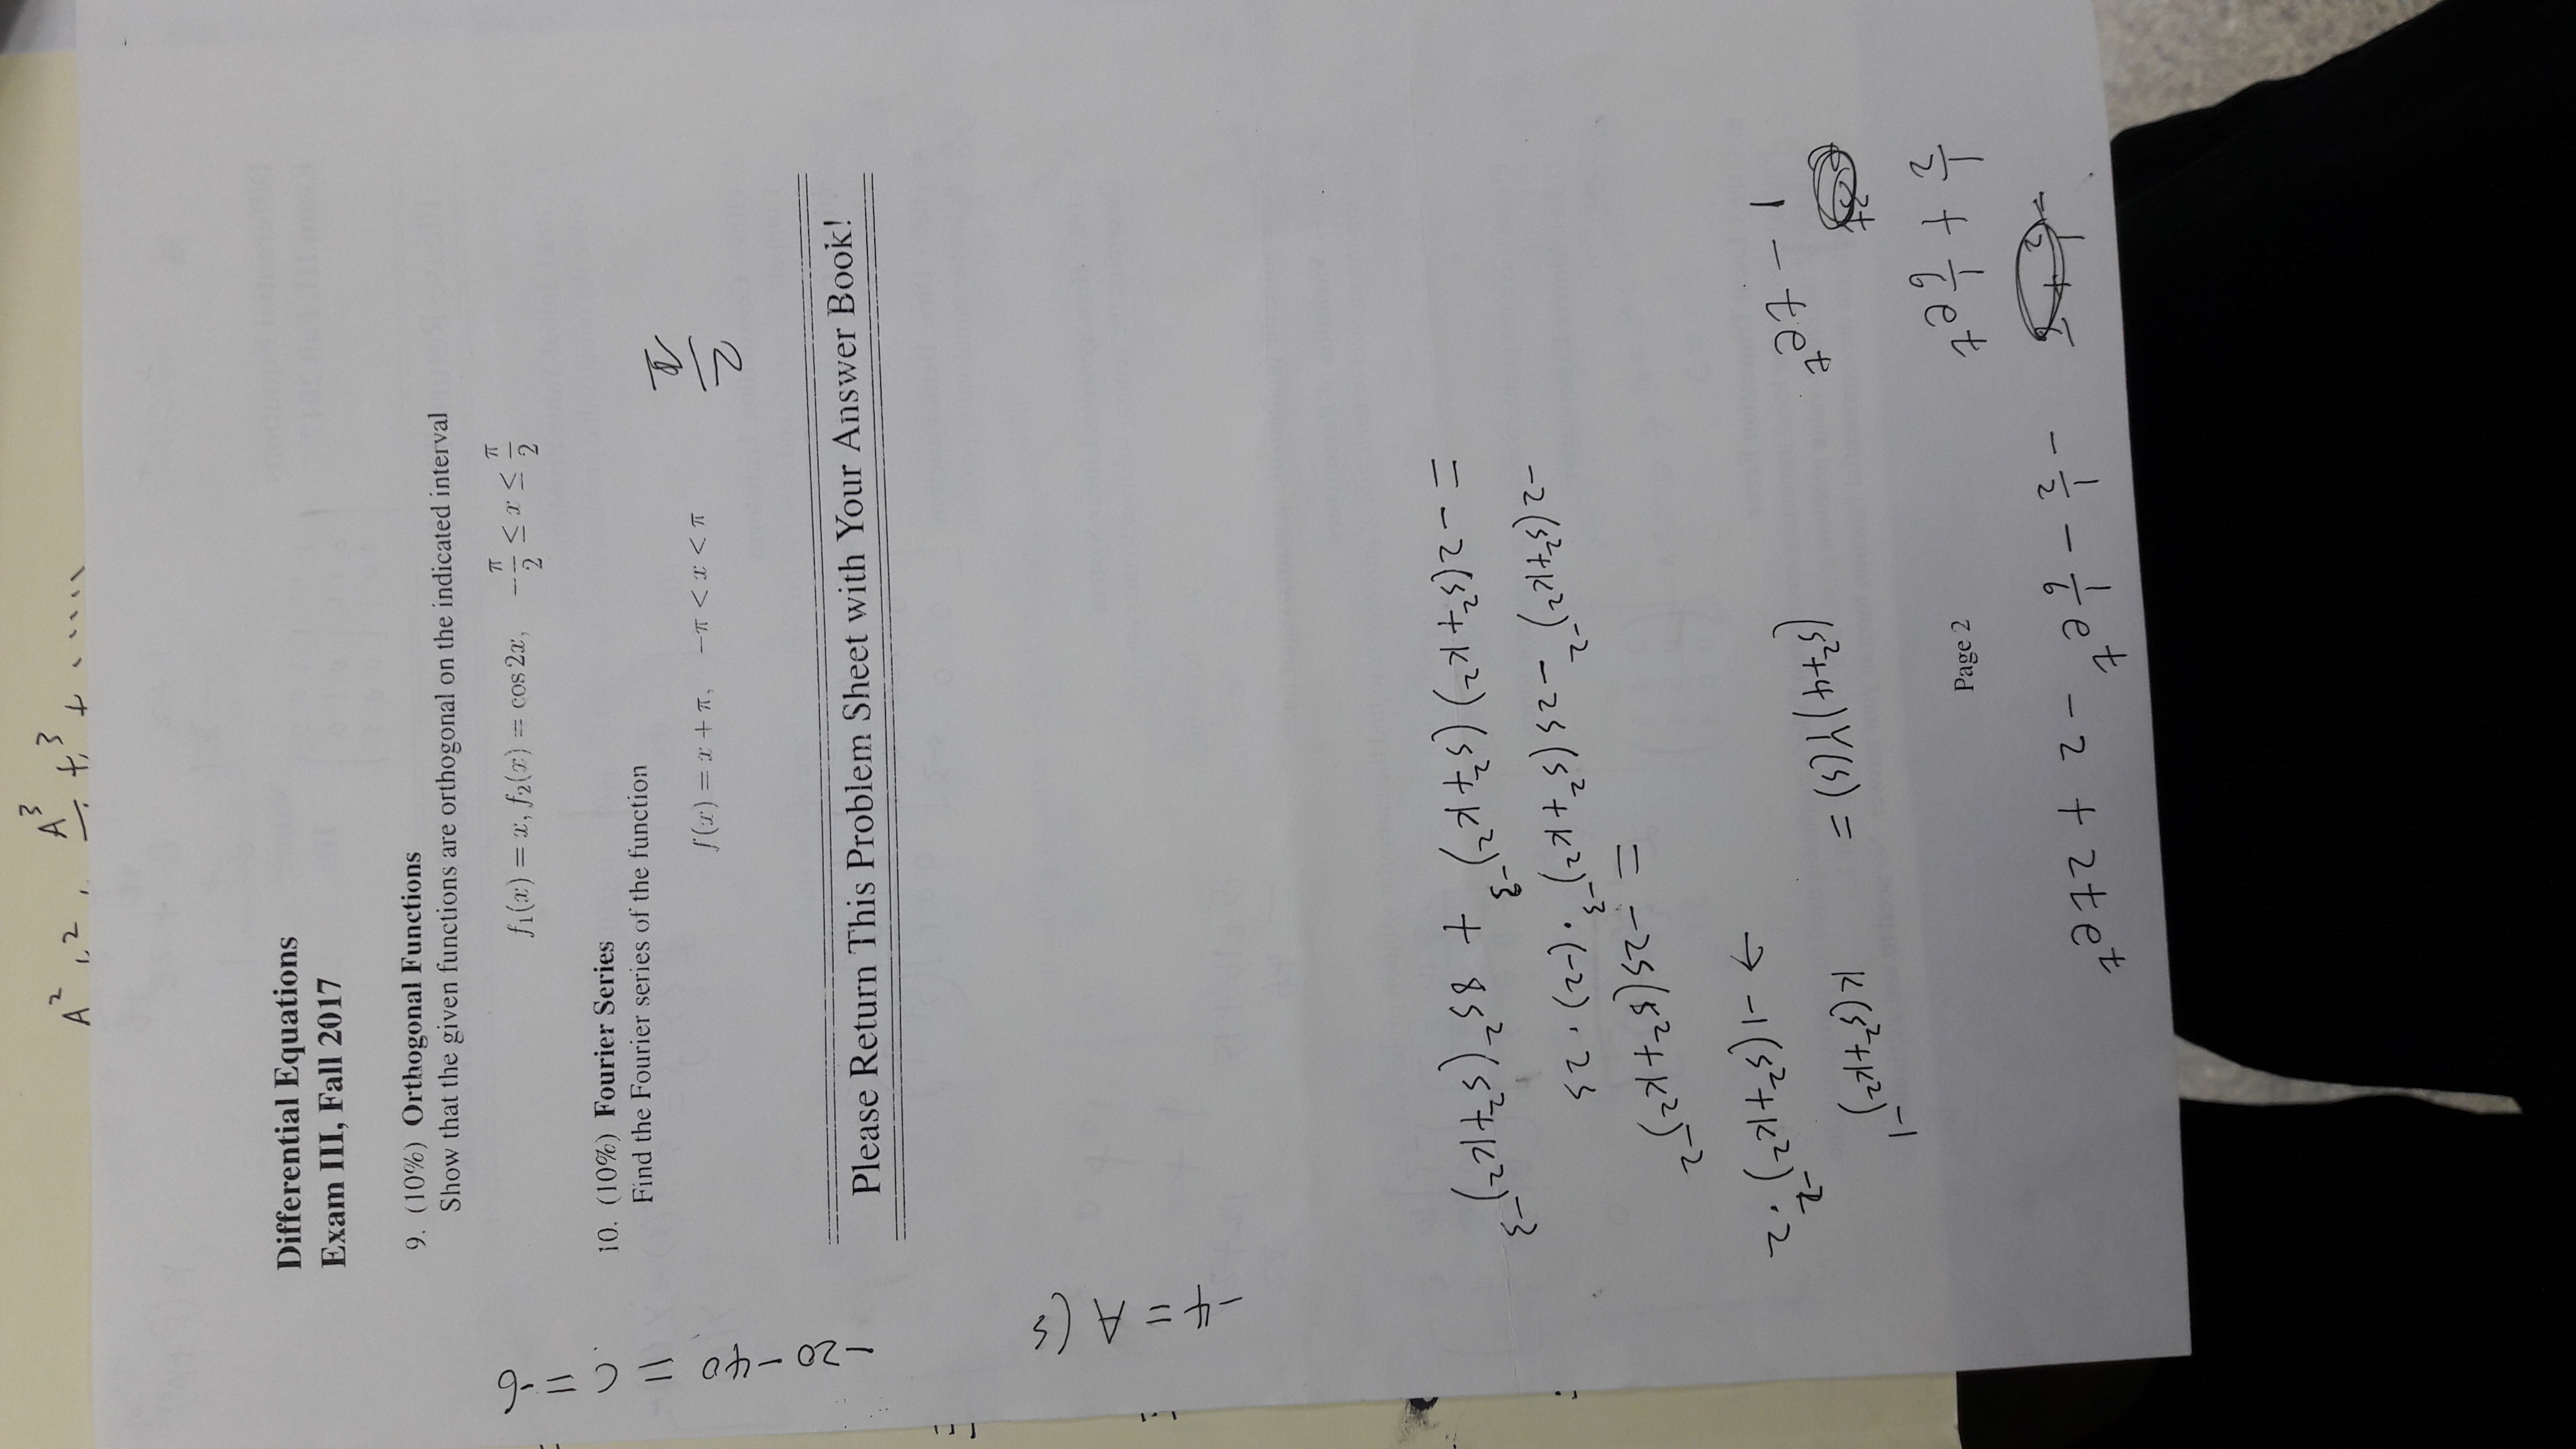 A² t² + A³ t³ + .....
Differential Equations
Exam III, Fall 2017
9. (10%) Orthogonal Functions
Show that the given functions are orthogonal on the indicated interval
f₁(x) = x, f₂(x) = cos 2x, −π/2 ≤ x ≤ π/2
10. (10%) Fourier Series
Find the Fourier series of the function
f(x) = x + π, −π < x < π
π/2
Please Return This Problem Sheet with Your Answer Book!
-20-40 =
-4 = A(
= -2(s²+k²)(s²+k²)⁻³ + 8s²(s²+k²)⁻³
-2(s²+k²)⁻² -2s(s²+k²)⁻³·(-2)·2s
= -2s(s²+k²)⁻²
→ -1(s²+k²)⁻²·2
k(s²+k²)⁻¹
(s²+4)Y(s) =
1 - te^t
1/2 + 1/6 e^t
Page 2
- 1/2 - 1/6 e^t - 2 + 2te^t